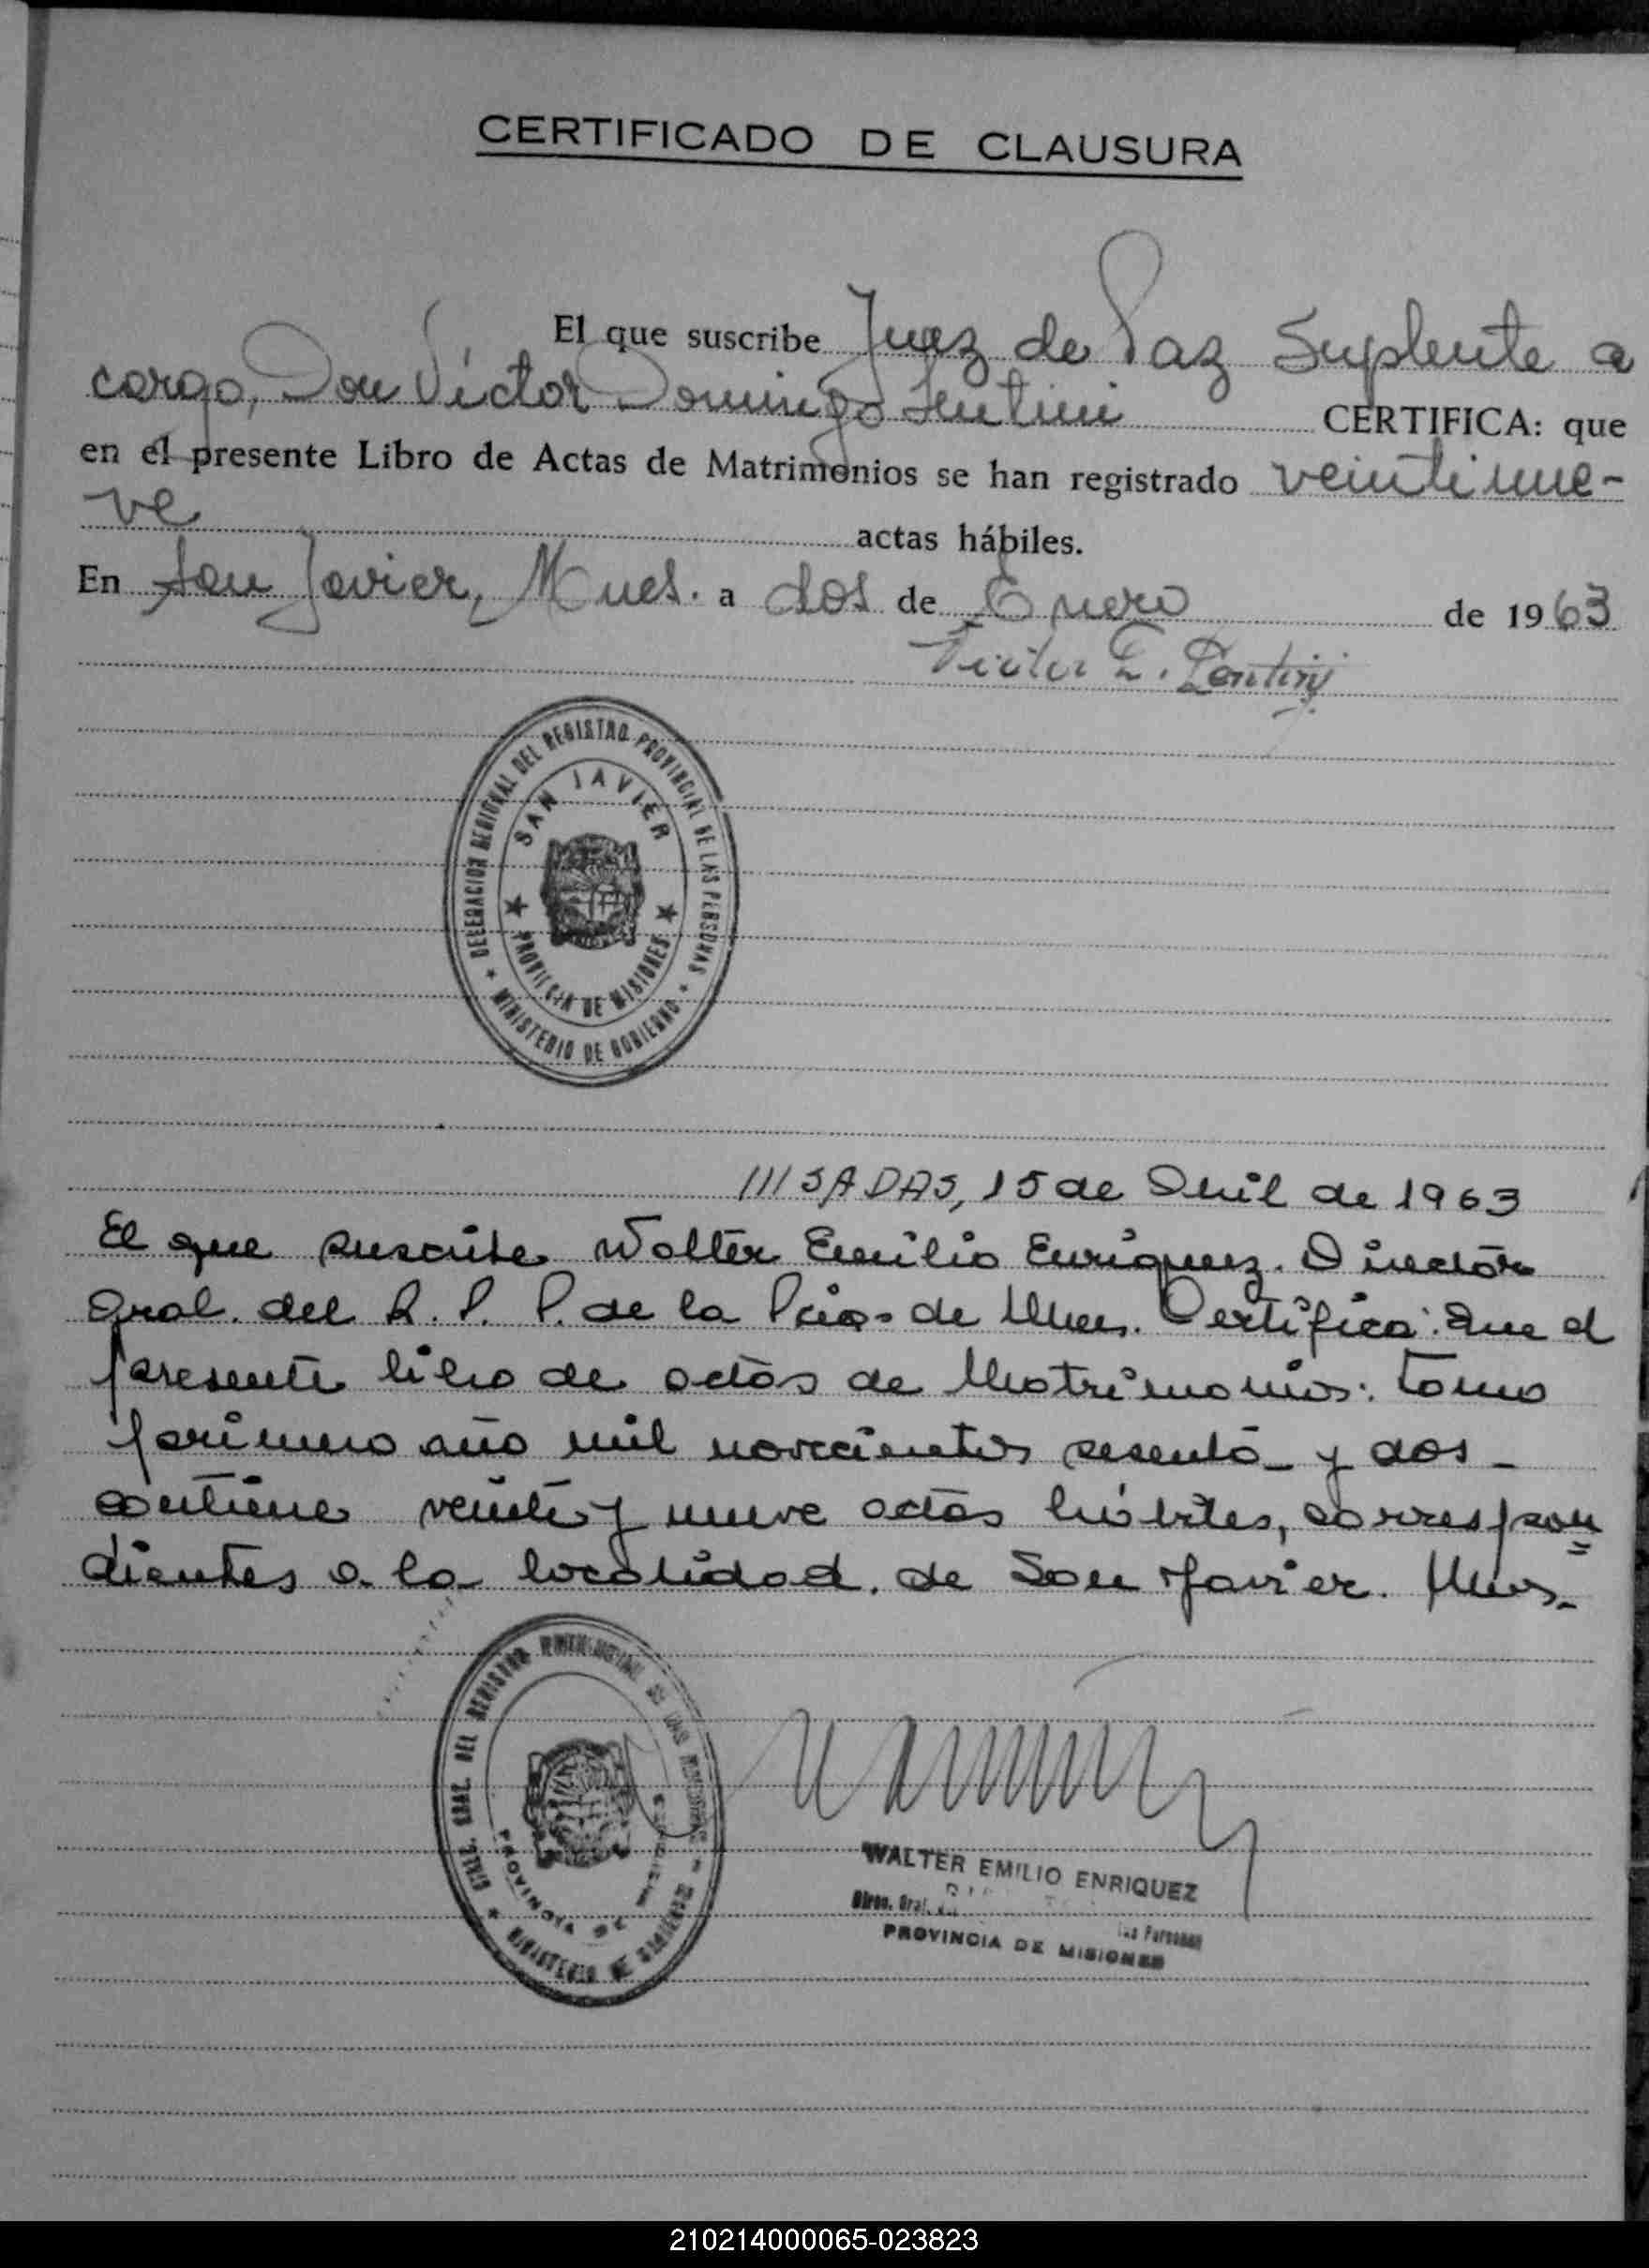 CERTIFICADO DE CLAUSURA
El que suscribe Juez de Paz Suplente a
cargo, Don Víctor Domingo CERTIFICA: que
en el presente Libro de Actas de Matrimonios se han registrado veintinue-
ve actas hábiles.
En San Javier, Mnes. a dos de Enero de 1963
Victor D.
DELEGACION REGIONAL DEL REGISTRO PROVINCIAL DE LAS PERSONAS
SAN JAVIER
PROVINCIA DE MISIONES
MINISTERIO DE GOBIERNO
///SADAS, 15 de Abril de 1963
El que suscribe Walter Emilio Enriquez. Director
Gral. del R. P. P. de la Pcia. de Mnes. Certifica: Que el
presente libro de actas de Matrimonios: tomo
primero año mil novecientos sesenta y dos
contiene veinte y nueve actas hábiles, correspon
dientes a la localidad de San Javier. Mnes.
GRAL. DEL REGISTRO
PROVINCIA DE
MINISTERIO DE
WALTER EMILIO ENRIQUEZ
Direc. Gral.
las Personas
PROVINCIA DE MISIONES
210214000065-023823